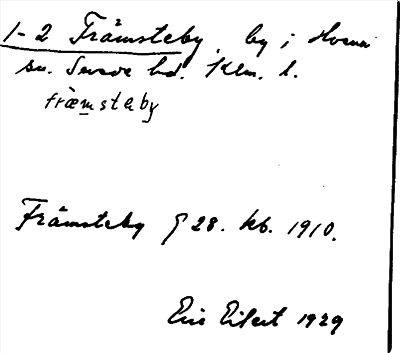 1-2 Främsteby, by i Hossmo
sn. Smede hd. Klm. l.
främsteby
Främsteby J 28. kb. 1910.
Eric Eilert 1929